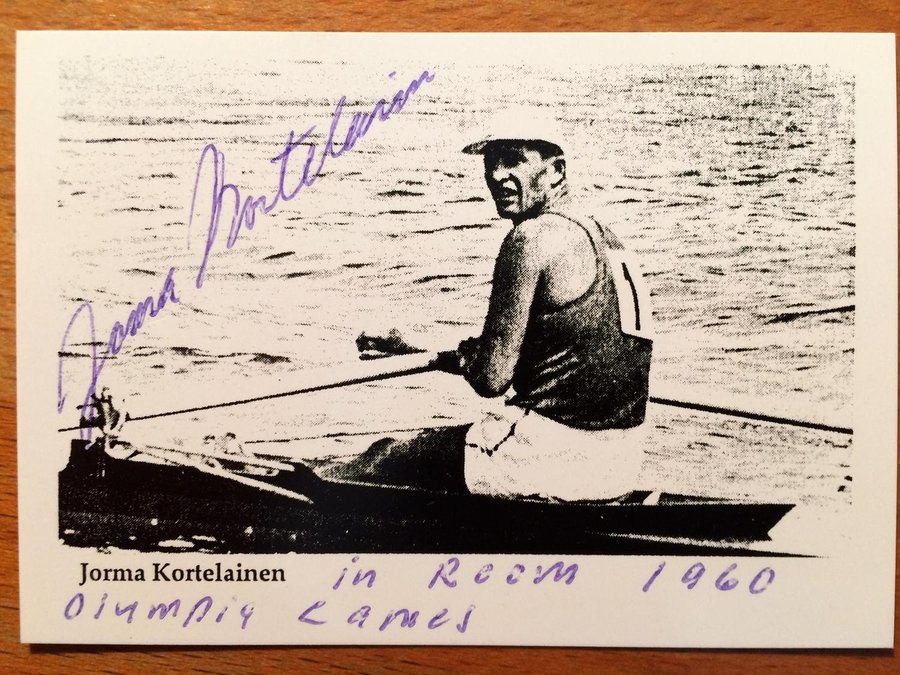 Jorma Kortelainen
1
Jorma Kortelainen in Room 1960
Olympig Games